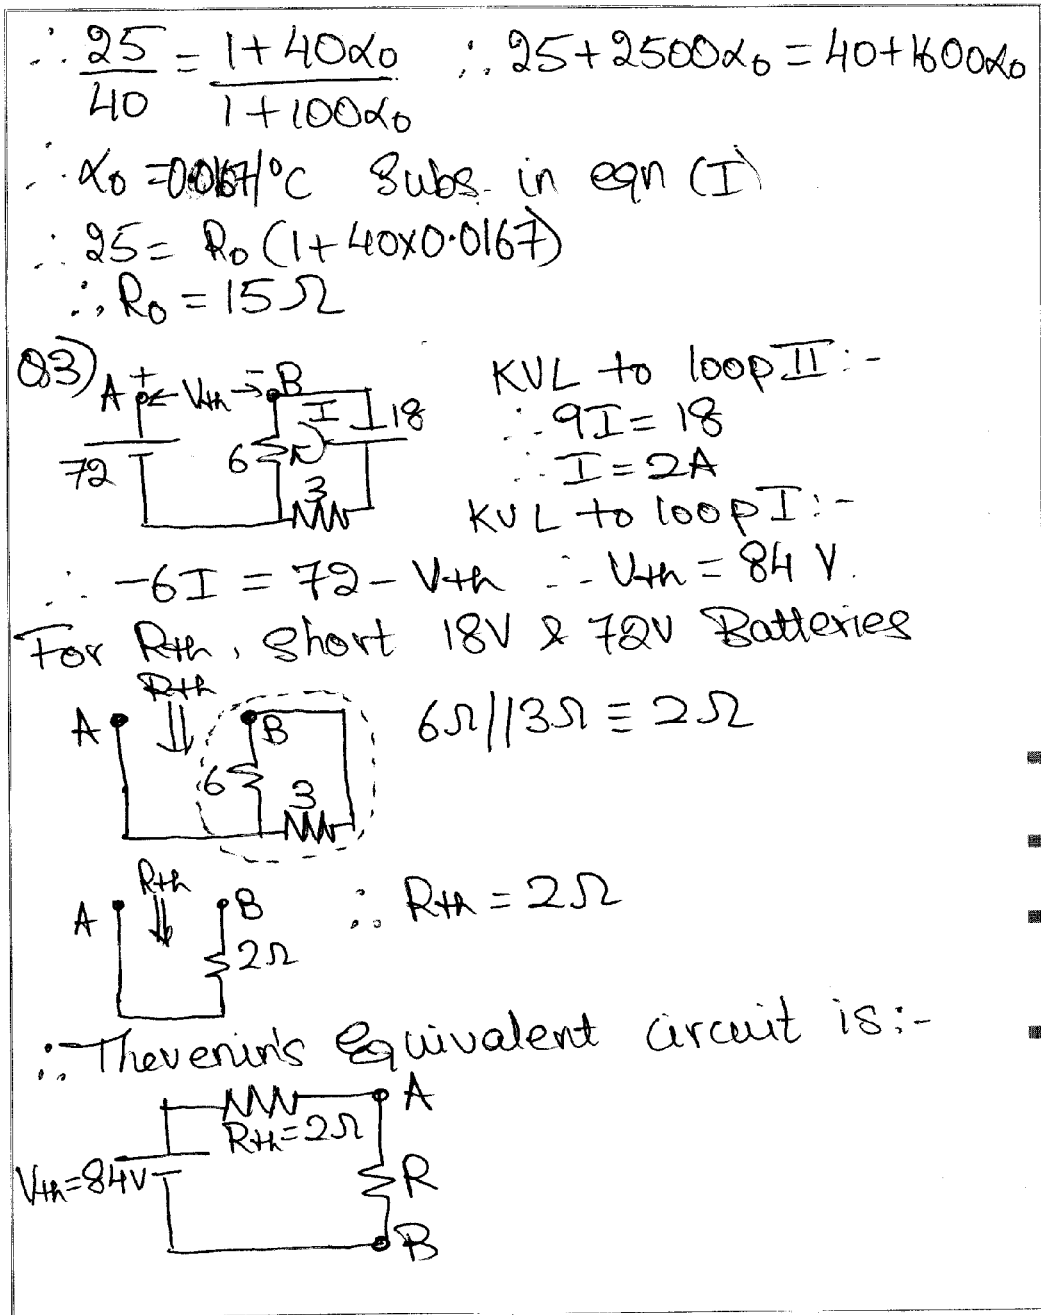 ∴ 25/40 = (1+40α₀)/(1+100α₀) ∴ 25+2500α₀ = 40+1600α₀
∴ α₀ = 0.0167/°C Subs. in eqn (I)
∴ 25 = R₀ (1+40×0.0167)
∴ R₀ = 15Ω
Q3)
A + Vth - B
I 18
72 6
3
KVL to loop II :-
∴ 9I = 18
∴ I = 2A
KVL to loop I :-
∴ -6I = 72 - Vth ∴ Vth = 84 V.
For Rth, Short 18V & 72V Batteries
Rth
A B 6Ω||3Ω ≡ 2Ω
6 3
Rth
A B ∴ Rth = 2Ω
2Ω
∴ Thevenin's Equivalent circuit is :-
A
Rth = 2Ω
Vth = 84V R
B